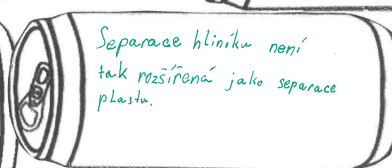 Separace hliníku není
tak rozšířená jako separace
plastu.